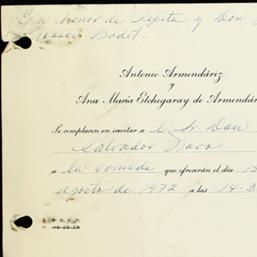 En honor de Pepita y Don
Torres Bodet.
Antonio Armendáriz
y
Ana María Etchegaray de Armendár
Se complacen en invitar a l Sr Don
Salvador Novo
a la comida que ofrecerán el día 15
agosto de 1972 a las 14-3
R. S. V. P.